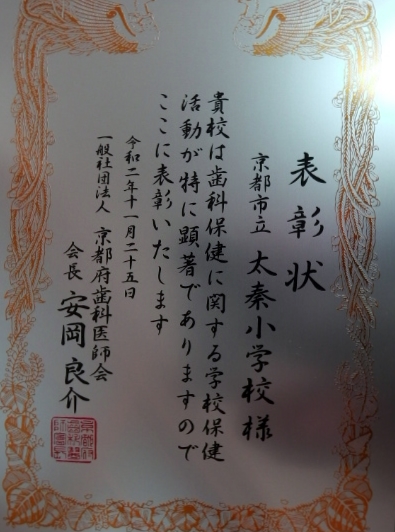 表彰状
京都市立 太秦小学校様
貴校は歯科保健に関する学校保健
活動が特に顕著でありますので
ここに表彰いたします
令和二年十一月二十五日
一般社団法人 京都府歯科医師会
会長 安岡良介